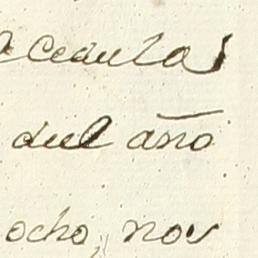 cedulas
del año
ocho, nov